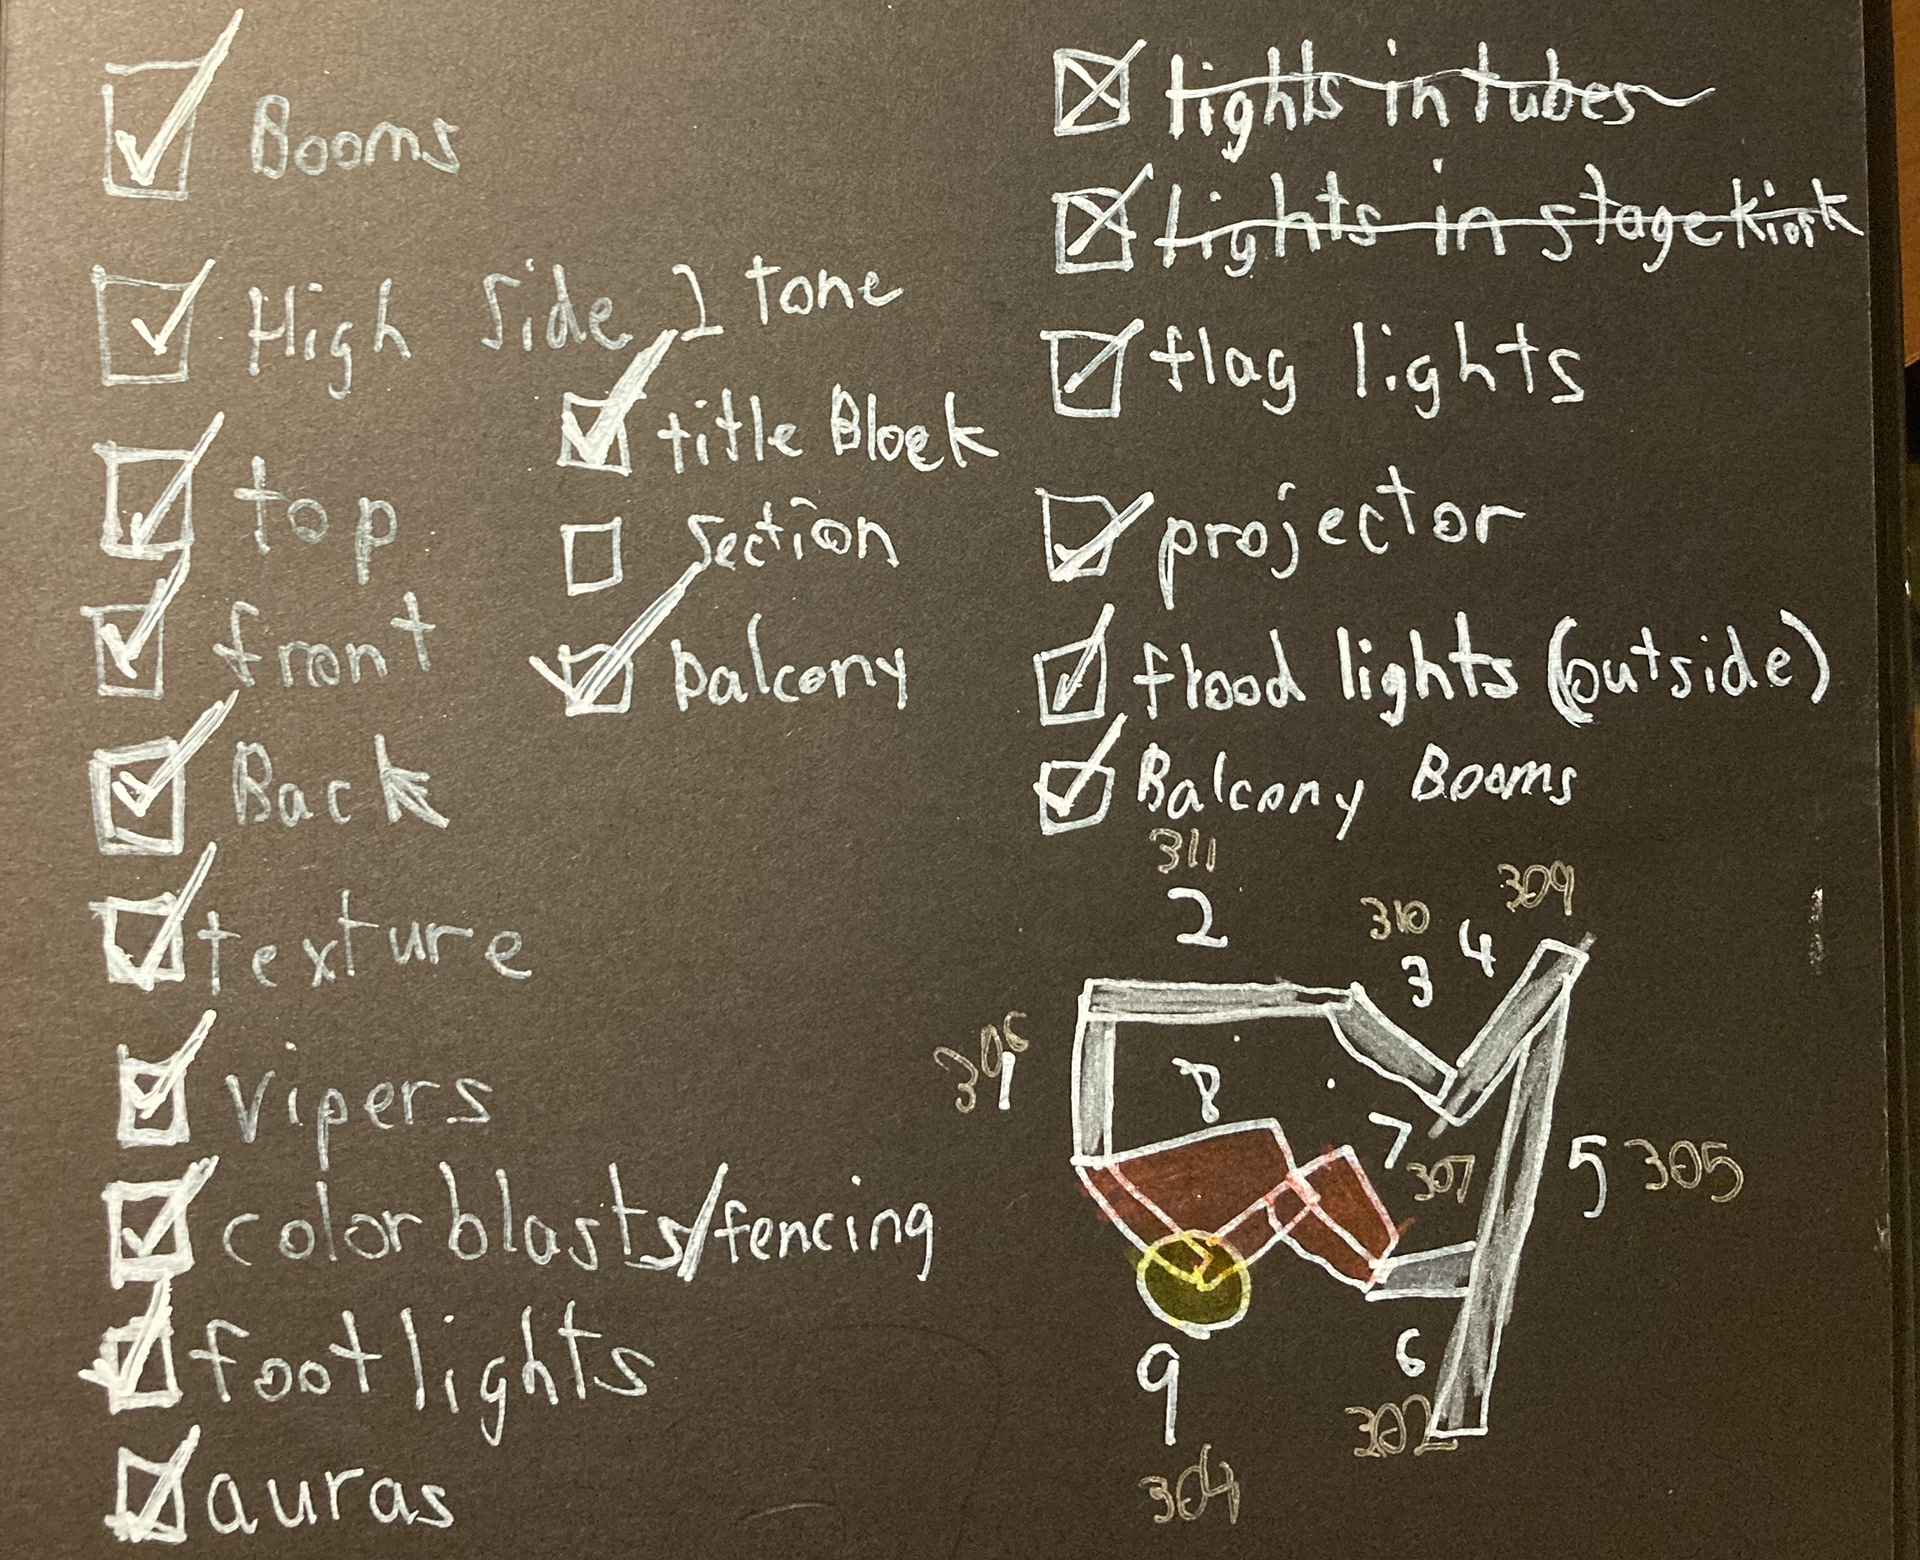 Booms
High Side 2 tone
top
front
Back
texture
vipers
color blasts/fencing
footlights
auras
title Block
Section
balcony
lights in tubes
lights in stage kiosk
flag lights
projector
flood lights (outside)
Balcony Booms
311
2
309
310
4
3
306
1
8
7
307
5 305
6
9
302
304